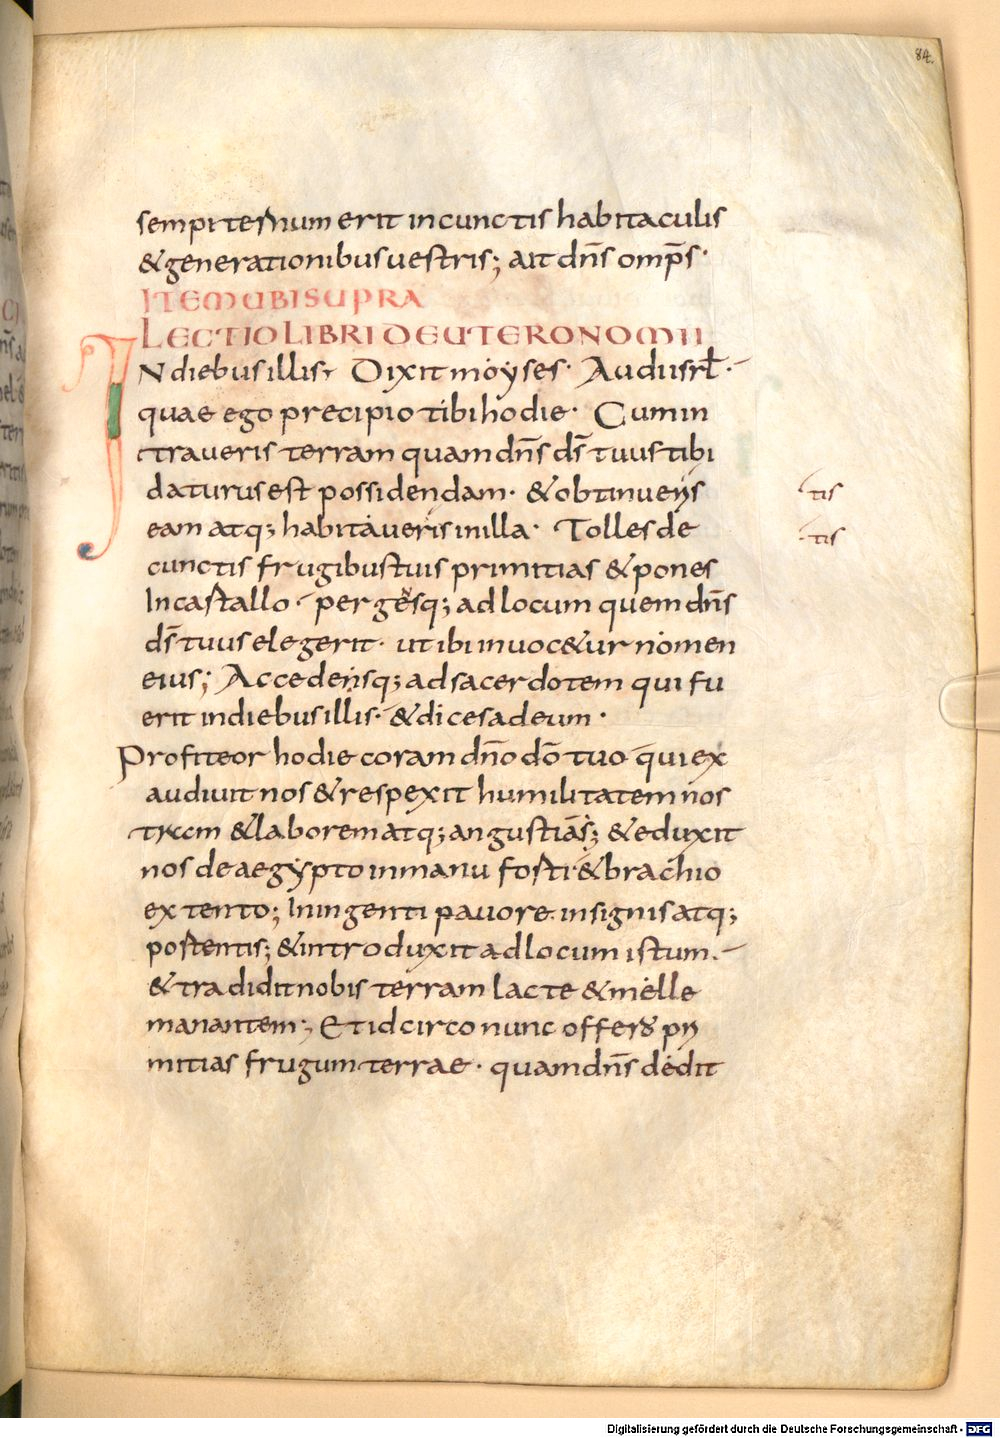 84.
sempiternum erit in cunctis habitaculis
& generationibus uestris; ait dn̄s omp̄s·
ITEM UBI SUPRA
LECTIO LIBRI DEUTERONOMII
IN diebus illis· Dixit moyses· Audi isrł·
quae ego precipio tibi hodie· Cum in
traueris terram quam dn̄s ds̄ tuus tibi
daturus est possidendam· & obtinueris
tis
eam atq; habitaueris in illa· Tolles de
tis
cunctis frugibus tuis primitias & pones
In castallo· pergesq; ad locum quem dn̄s
ds̄ tuus elegerit· ut ibi inuoc&ur nomen
eius; Accedensq; ad sacerdotem qui fu
erit in diebus illis· & dices ad eum·
Profiteor hodie coram dn̄o dō tuo qui ex
audiuit nos & respexit humilitatem nos
tram & laborem atq; angustias; & eduxit
nos de aegypto in manu forti & brachio
extento; In ingenti pauore in signis atq;
postentis; & introduxit ad locum istum·
& tradidit nobis terram lacte & melle
manantem; Et idcirco nunc offero pri
mitias frugum terrae· quam dn̄s dedit
Digitalisierung gefördert durch die Deutsche Forschungsgemeinschaft - DFG